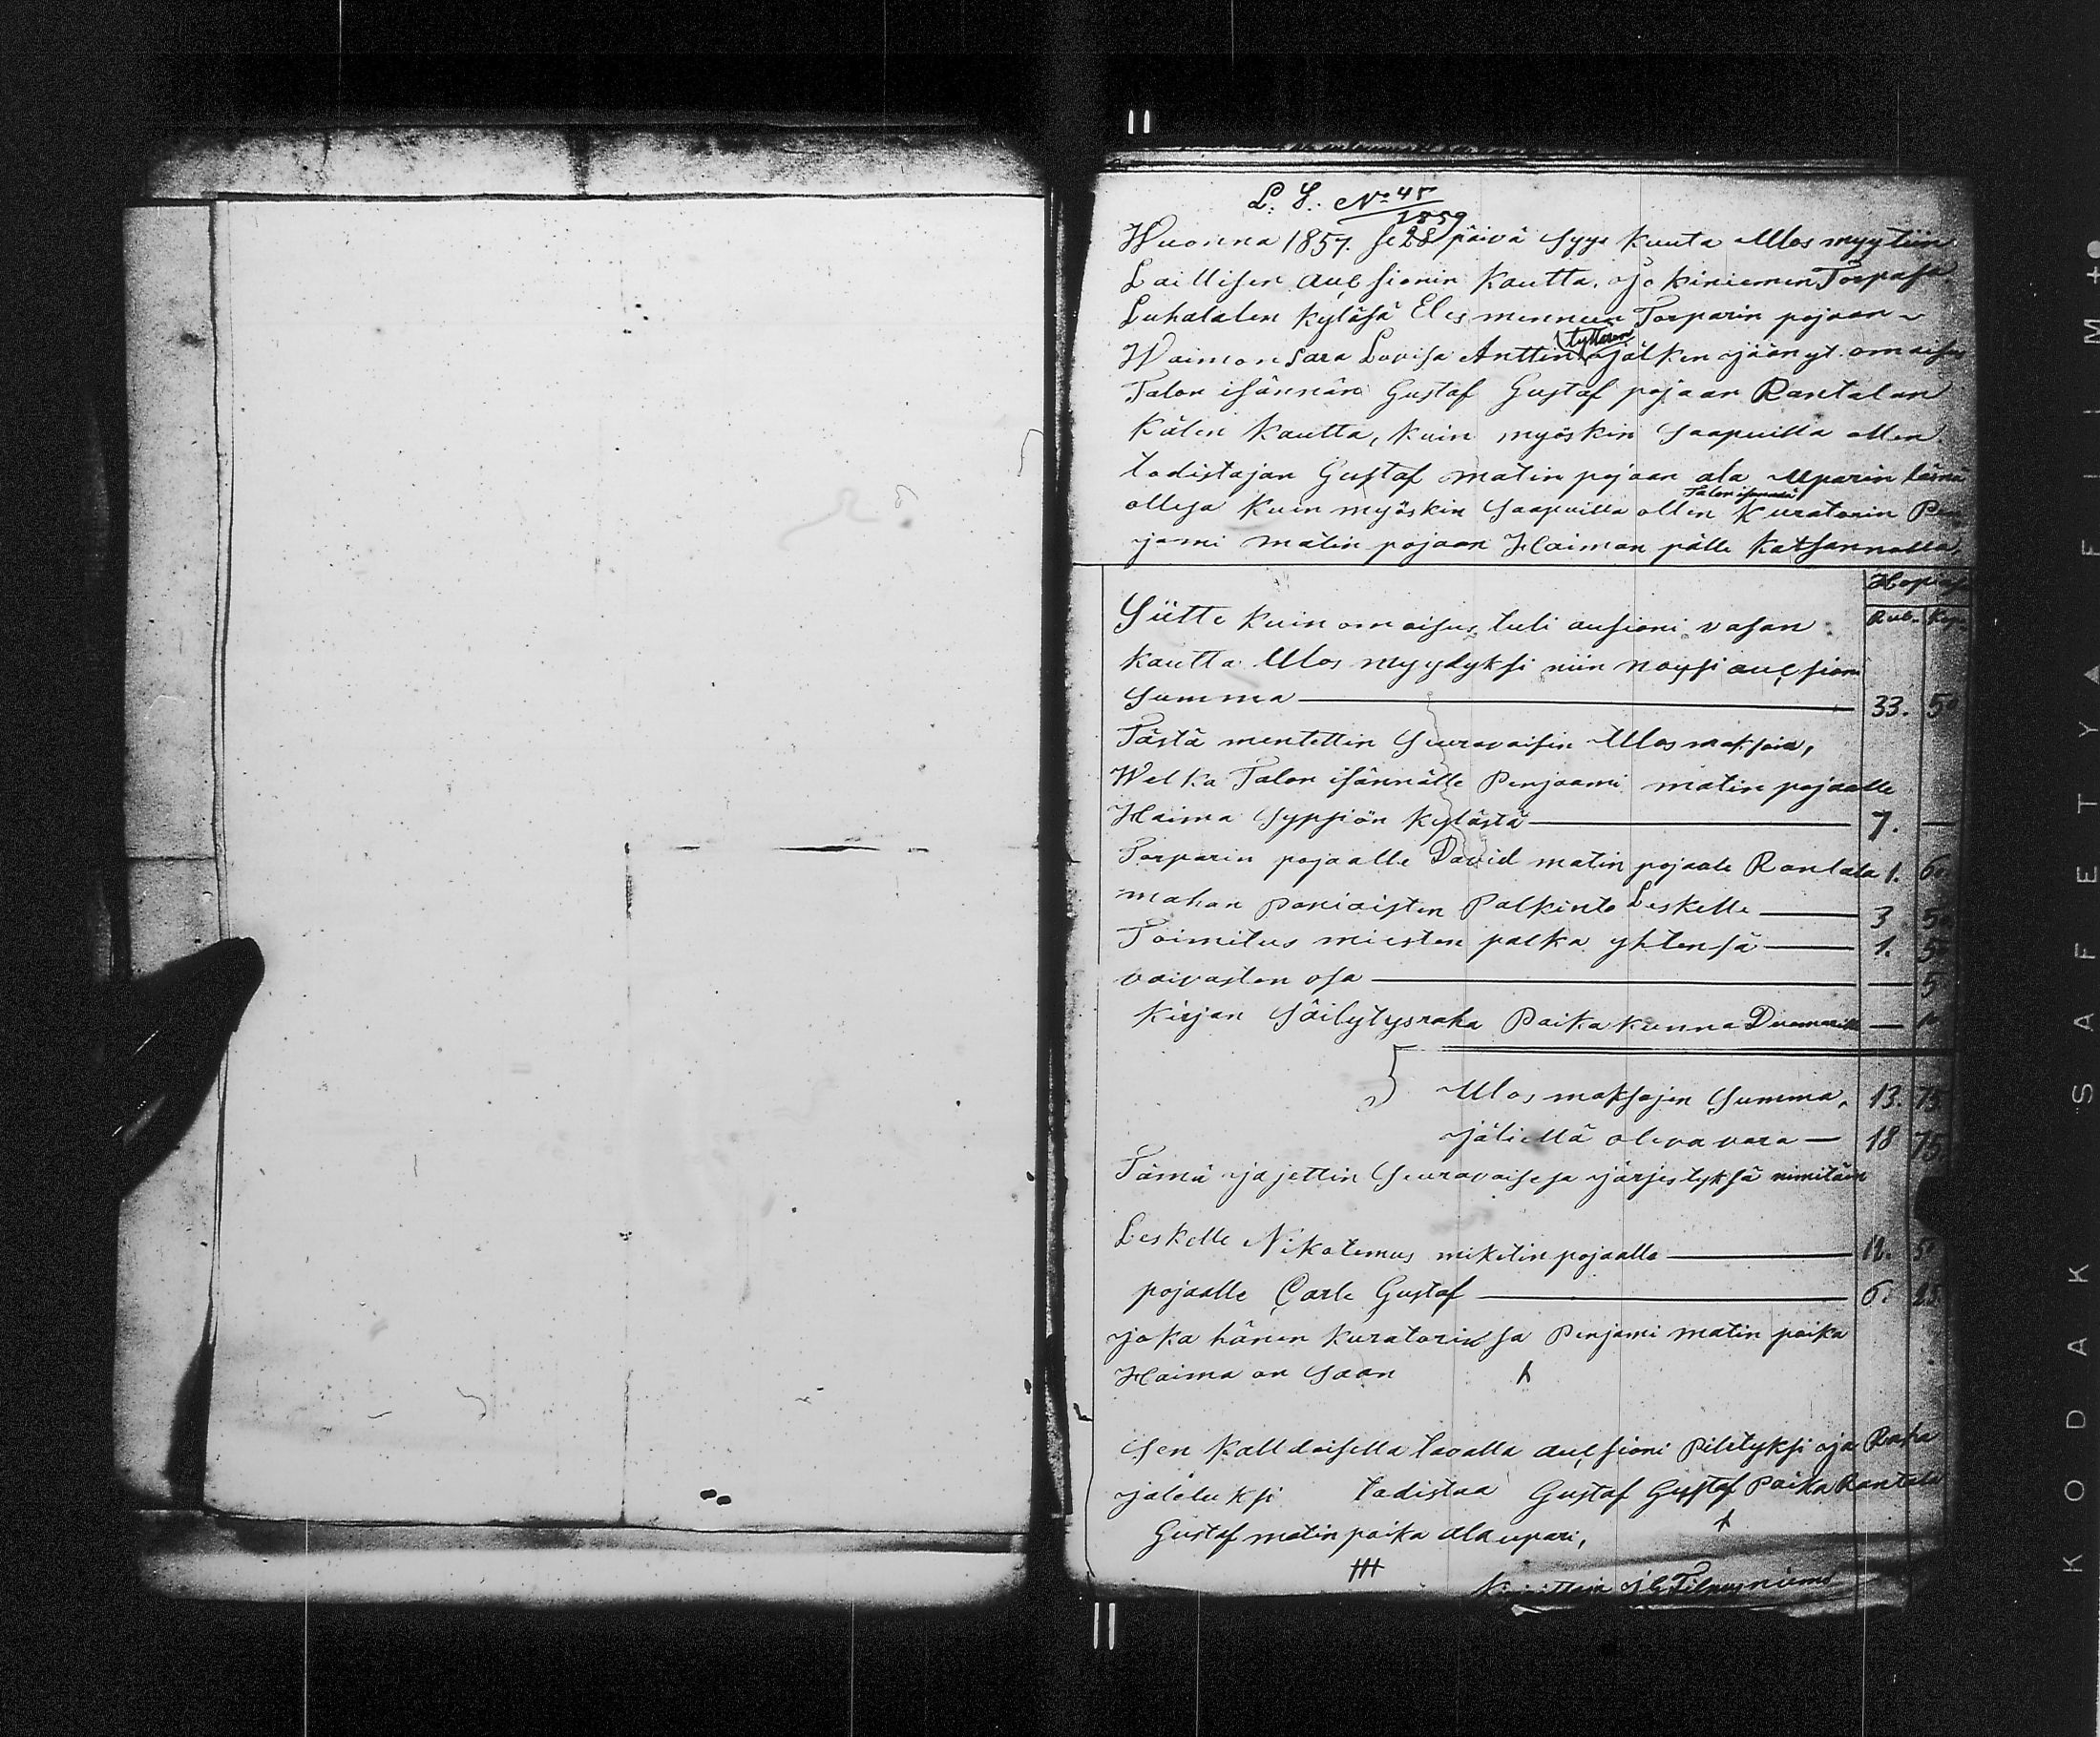 11
L. S. No 45
1859
Wuonna 1857. se 28 päivä Syys kuuta Ulos myytiin
Laillisen aucsionin kautta, Jokiniemen Torpasa
Luhalalen kyläsä Eles mennen Torparin pojaan
tyttären
Waimon Sara Lovisa Anttin jälken jäänyt omaisus
Talon isännän Gustaf Gustaf pojaan Rantalan
käten kautta, kuin myöskin Saapuilla ollen
todistajan Gustaf matin pojaan ala Uparin läsnä
Talon isännän
ollesa kuin myöskin Saapuilla ollen Kuratorin Pen
jami matin pojaan Haiman pälle katsannolla
Hopiasa
Rub. Kop.
Siitte kuin omaisus tuli ausioni vasan
kautta Ulos myydyksi niin noysi aucsioni
Summa 33. 50
Tästä mentettin Seuravaisin Ulos maksoin,
Welka Talon isännälle Penjaami matin pojaalle
Haima Sypsiön kylästä 7. —
Torparin pojaalle David matin pojaale Rantala 1. 60
mahan paniaisten Palkinto Leskelle 3 50
Toimitus miesten palka yhtensä 1. 50
vaivasten osa — 5
Kirjan Säilytysraha Paikakunna Duomarille — 10
Ulos maksojen Summa, 13. 75
jäliellä oleva vara — 18 75
Tämä jajettin Seuravaisesa järjestyksä nimitäin
Leskelle Nikatemus miketin pojaalle 12. 50
pojaalle Carle Gustaf 6. 25
joka hänen kuratorinsa Penjami matin poika
Haima on Saan
Sen kalldaisella tavalla aucsioni Pitetyksi ja Raha
jaleluksi todistaa Gustaf Gustaf Poika Rantala
Gustaf matin poika ala upari,
11
KODAK SAFETY FILM